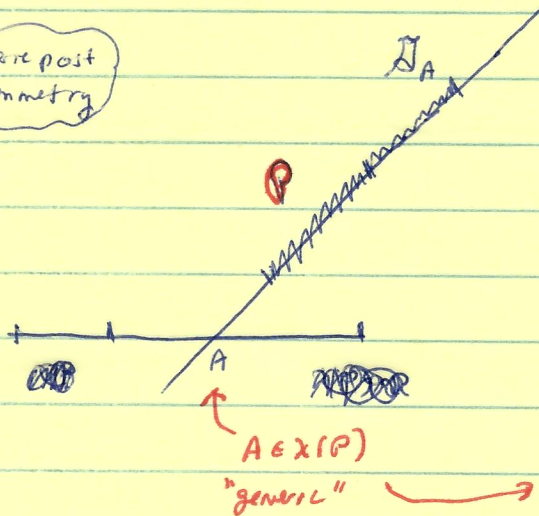 ore post
mmetry
A
P
A
A ∈ χ(P)
"generic"